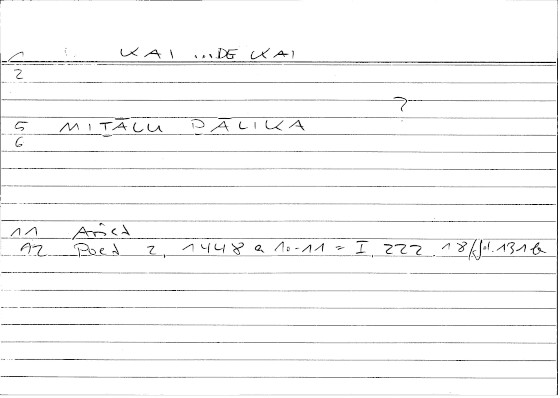 1 KAI ...DE KAI
2
?
5 MIṮĀLU DĀLIKA
6
11 Arist
12 Poet 2, 1448 a 10-11 = I, 222, 18/fol. 131b